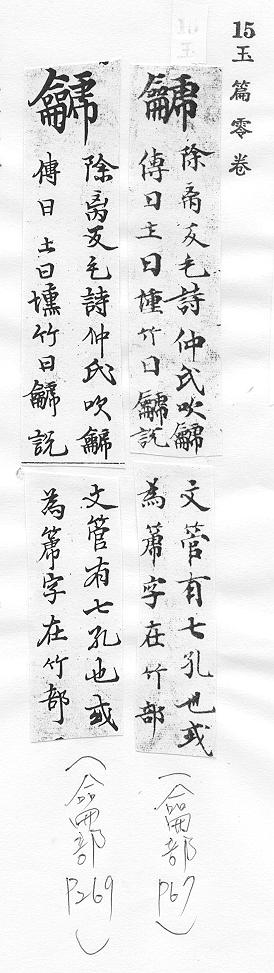 15玉篇零卷
䶵
除离反毛詩仲氏吹䶵
傳曰土曰壎竹曰䶵説
文管有七孔也或
為篪字在竹部
(龠部P67)
䶵
除离反毛詩仲氏吹䶵
傳曰土曰壎竹曰䶵説
文管有七孔也或
為篪字在竹部
(龠部P269)